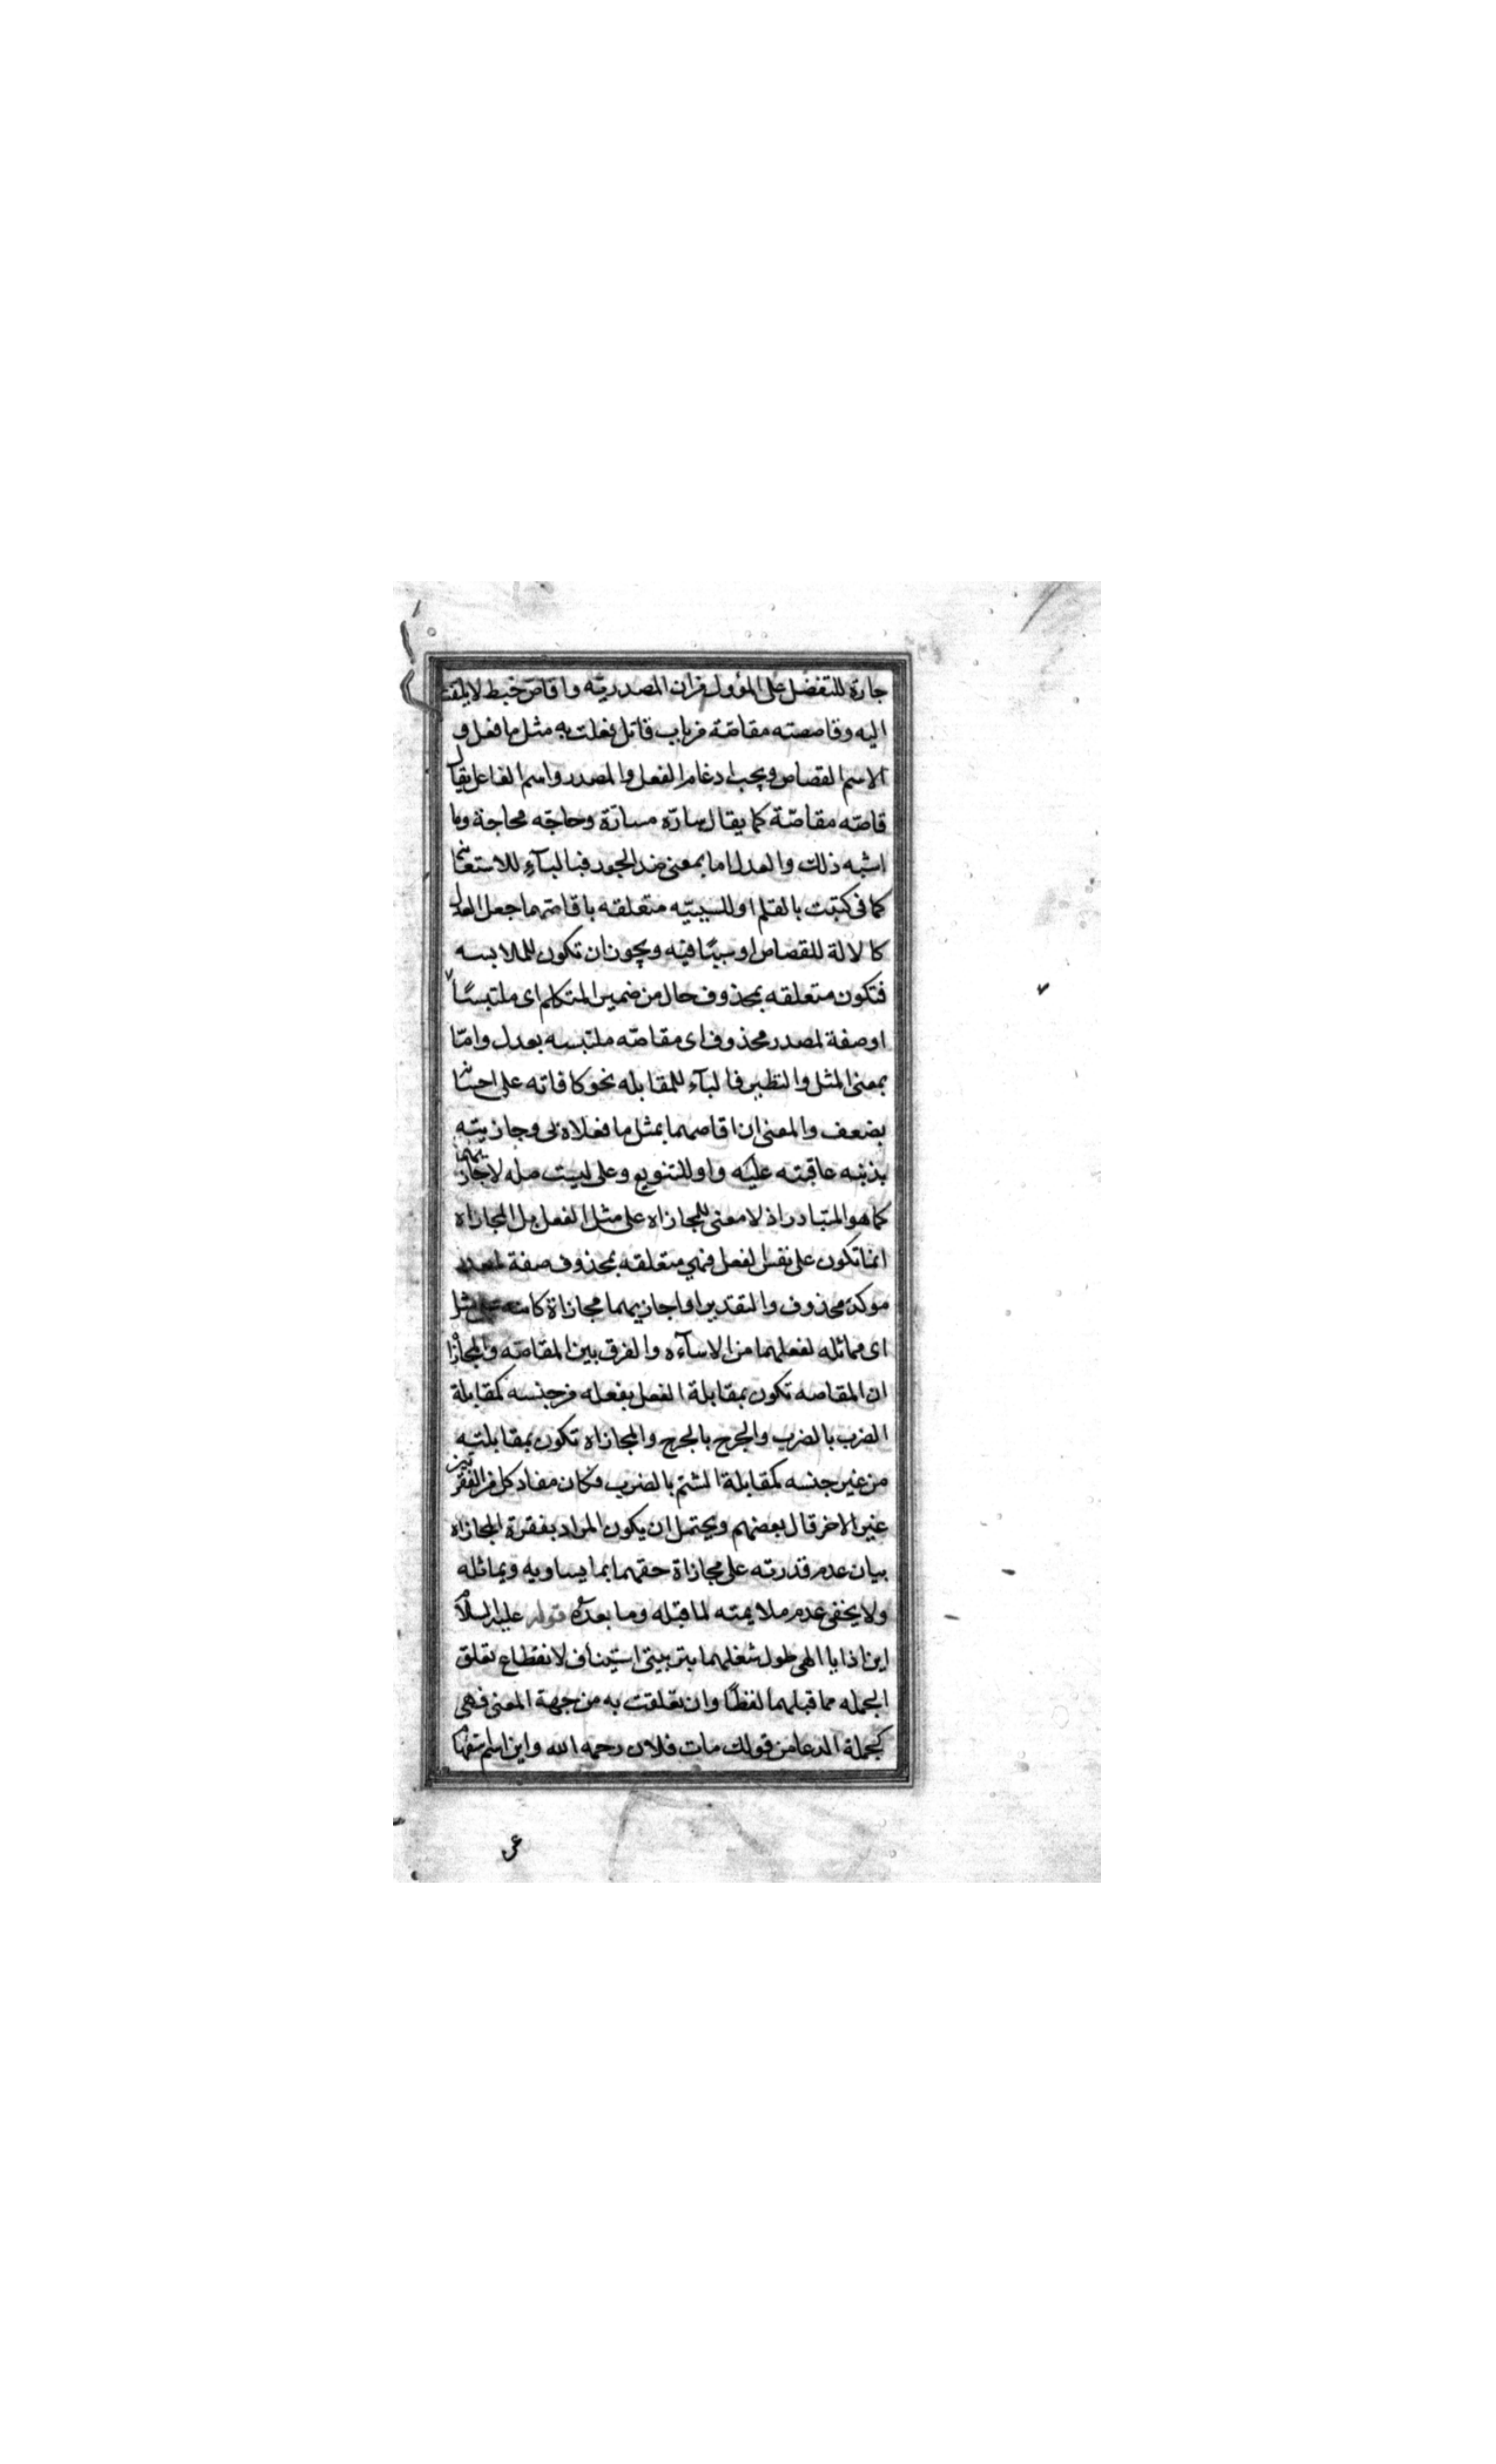 جارة للتفضل على المؤول من ان المصدريّه واقاصّ خبط لا يلتفت
اليه وقاصصته مقاصّة من باب قاتل فعلت به مثل ما فعل و
الاسم القصاص ويجب ادغام الفعل والمصدر واسم الفاعل يقال
قاصّه مقاصّة كما يقال سارّه مسارّة وحاجّه محاجة وما
اشبه ذلك والعدل اما بمعنى ضد الجور فبالبآء للاستعانه
كما فى كتبت بالقلم او للسببيّه متعلقه باقاصهما جعل العدل
كالالة للقصاص او سببًا فيه ويجوز ان تكون للملابسه
فتكون متعلقه بمحذوف حال من ضمير المتكلم اى ملتبسًا
او صفة لمصدر محذوف اى مقاصّه ملتبسه بعدل وامّا
بمعنى المثل والنظير فالبآء للمقابله نحو كافاته على احسانه
بضعف والمعنى ان اقاصهما بمثل ما فعلاه بى وجازيته
بذنبه عاقبته عليه واو للتنويع وعلى ليست صله لاجازيهما
كما هو المتبادر اذ لا معنى للمجازاه على مثل الفعل بل المجازاه
انما تكون على نفس الفعل فهي متعلقه بمحذوف صفة لمصدر
موكد محذوف والتقدير او اجازيهما مجازاة كائنه على مثل
اى مماثله لفعلهما من الاسآءه والفرق بين المقاصّه والمجازاة
ان المقاصه تكون بمقابلة الفعل بفعله من جنسه كمقابلة
الضرب بالضرب والجرح بالجرح والمجازاه تكون بمقابلته
من غير جنسه كمقابلة الشتم بالضرب فكان مفاد كل من الفقرتين
غير الاخر قال بعضهم ويحتمل ان يكون المراد بفقرة المجازاه
بيان عدم قدرته على مجازاة حقهما بما يساويه ويماثله
ولا يخفى عدم ملايمته لما قبله وما بعده قوله عليه السلام
اين اذا يا الهى طول شغلهما بتربيتى استيناف لانقطاع تعلق
الجمله مما قبلها لفظًا وان تعلقت به من جهة المعنى فهى
كجملة الدعا من قولك مات فلان رحمه الله واين اسم استفهام